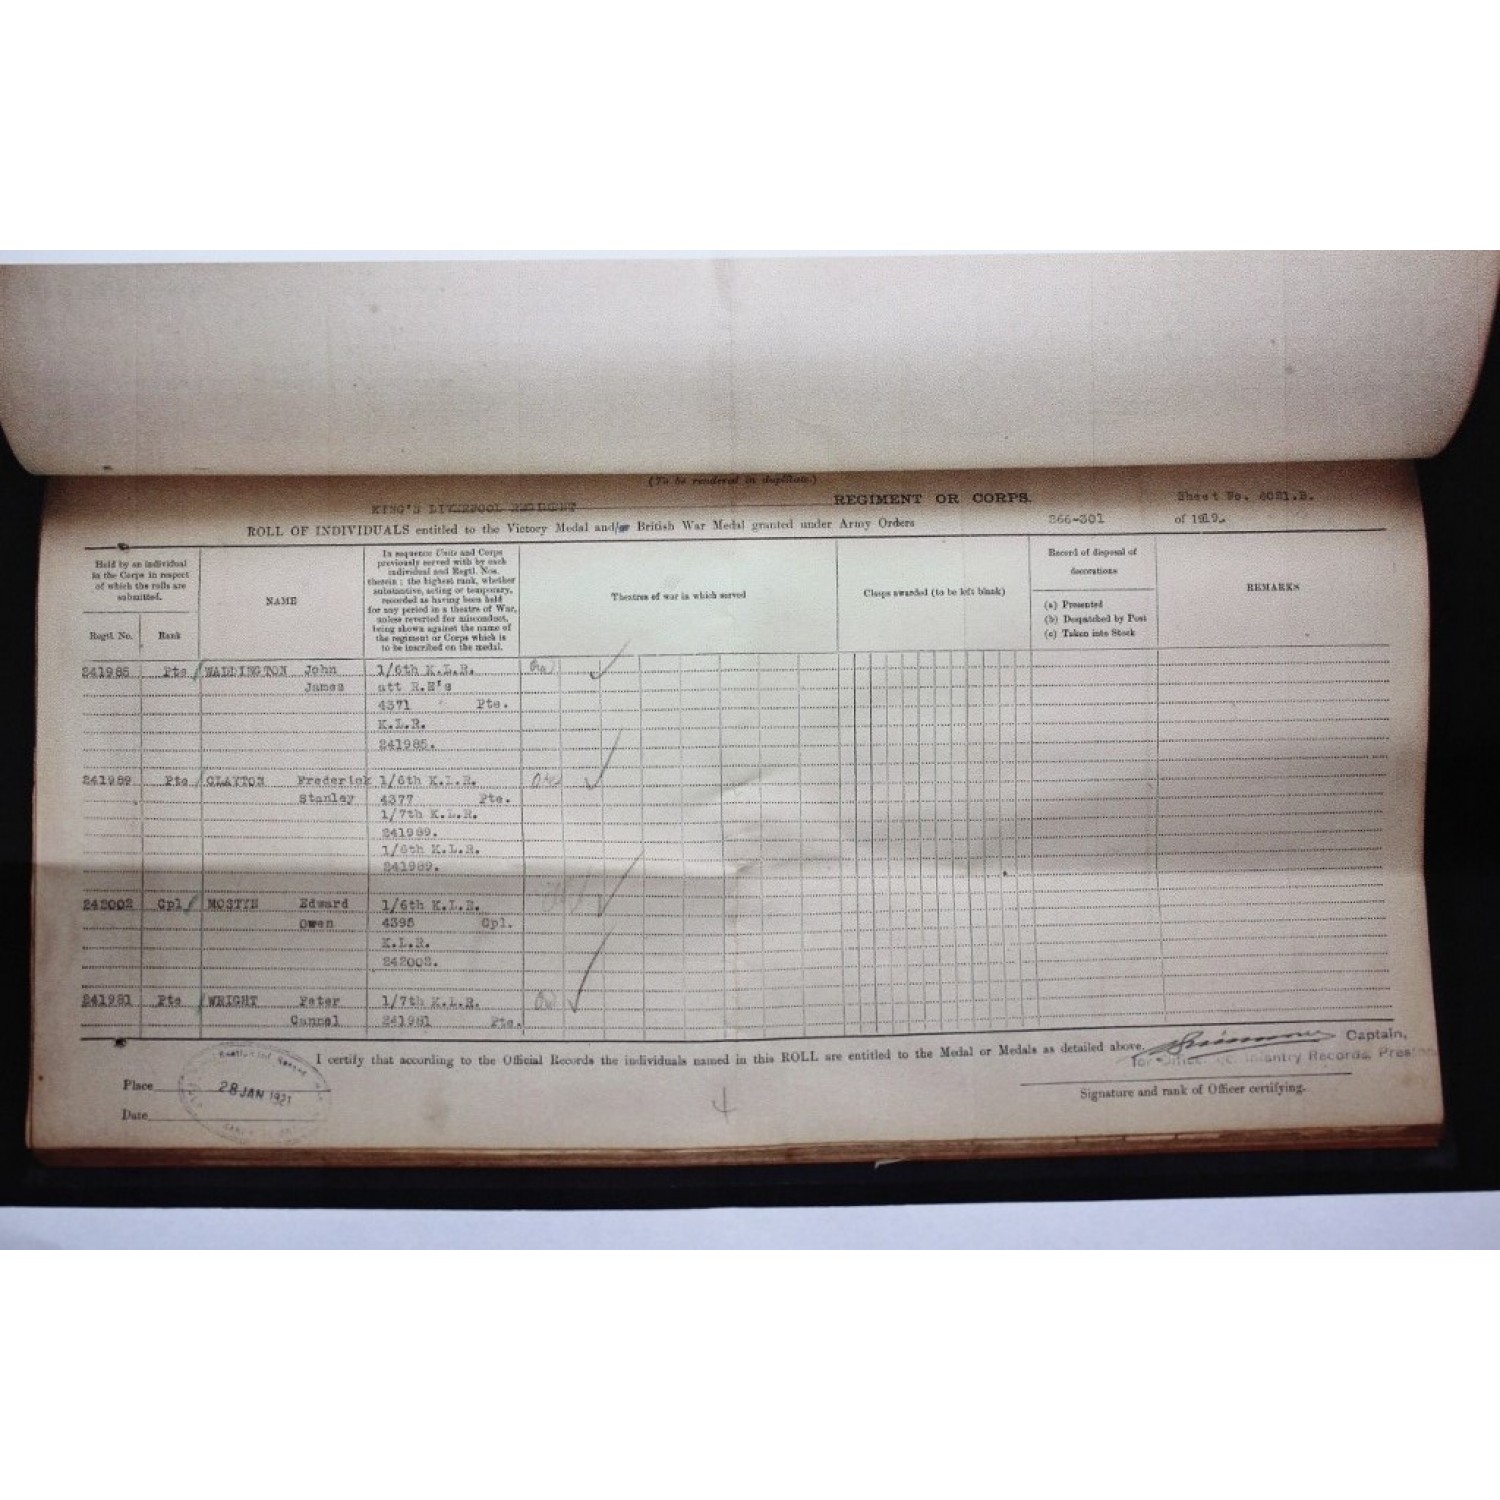 (To be rendered in duplicate.)
KING'S LIVERPOOL REGIMENT REGIMENT OR CORPS. Sheet No. 4021.B.
ROLL OF INDIVIDUALS entitled to the Victory Medal and/or British War Medal granted under Army Orders 266-301 of 1919.
Held by an individual
in the Corps in respect
of which the rolls are
submitted.
Regtl. No. Rank
NAME
In sequence Units and Corps
previously served with by each
individual and Regtl. Nos.
therein: the highest rank, whether
substantive, acting or temporary,
recorded as having been held
for any period in a theatre of War,
unless reverted for misconduct,
being shown against the name of
the regiment or Corps which is
to be inscribed on the medal.
Theatres of war in which served
Clasps awarded (to be left blank)
Record of disposal of
decorations
(a) Presented
(b) Despatched by Post
(c) Taken into Stock
REMARKS
241985 Pte WADDINGTON John 1/6th K.L.R.
James att R.E's
4371 Pte.
K.L.R.
241985.
241989 Pte CLAYTON Frederick 1/6th K.L.R.
Stanley 4377 Pte.
1/7th K.L.R.
241989.
1/6th K.L.R.
241989.
242002 Cpl MOSTYN Edward 1/6th K.L.R.
Owen 4395 Cpl.
K.L.R.
242002.
241981 Pte WRIGHT Peter 1/7th K.L.R.
Cannel 241981 Pte.
I certify that according to the Official Records the individuals named in this ROLL are entitled to the Medal or Medals as detailed above.
Captain,
for Officer i/c. Infantry Records, Preston
Place
28 JAN 1921
Date
Signature and rank of Officer certifying.